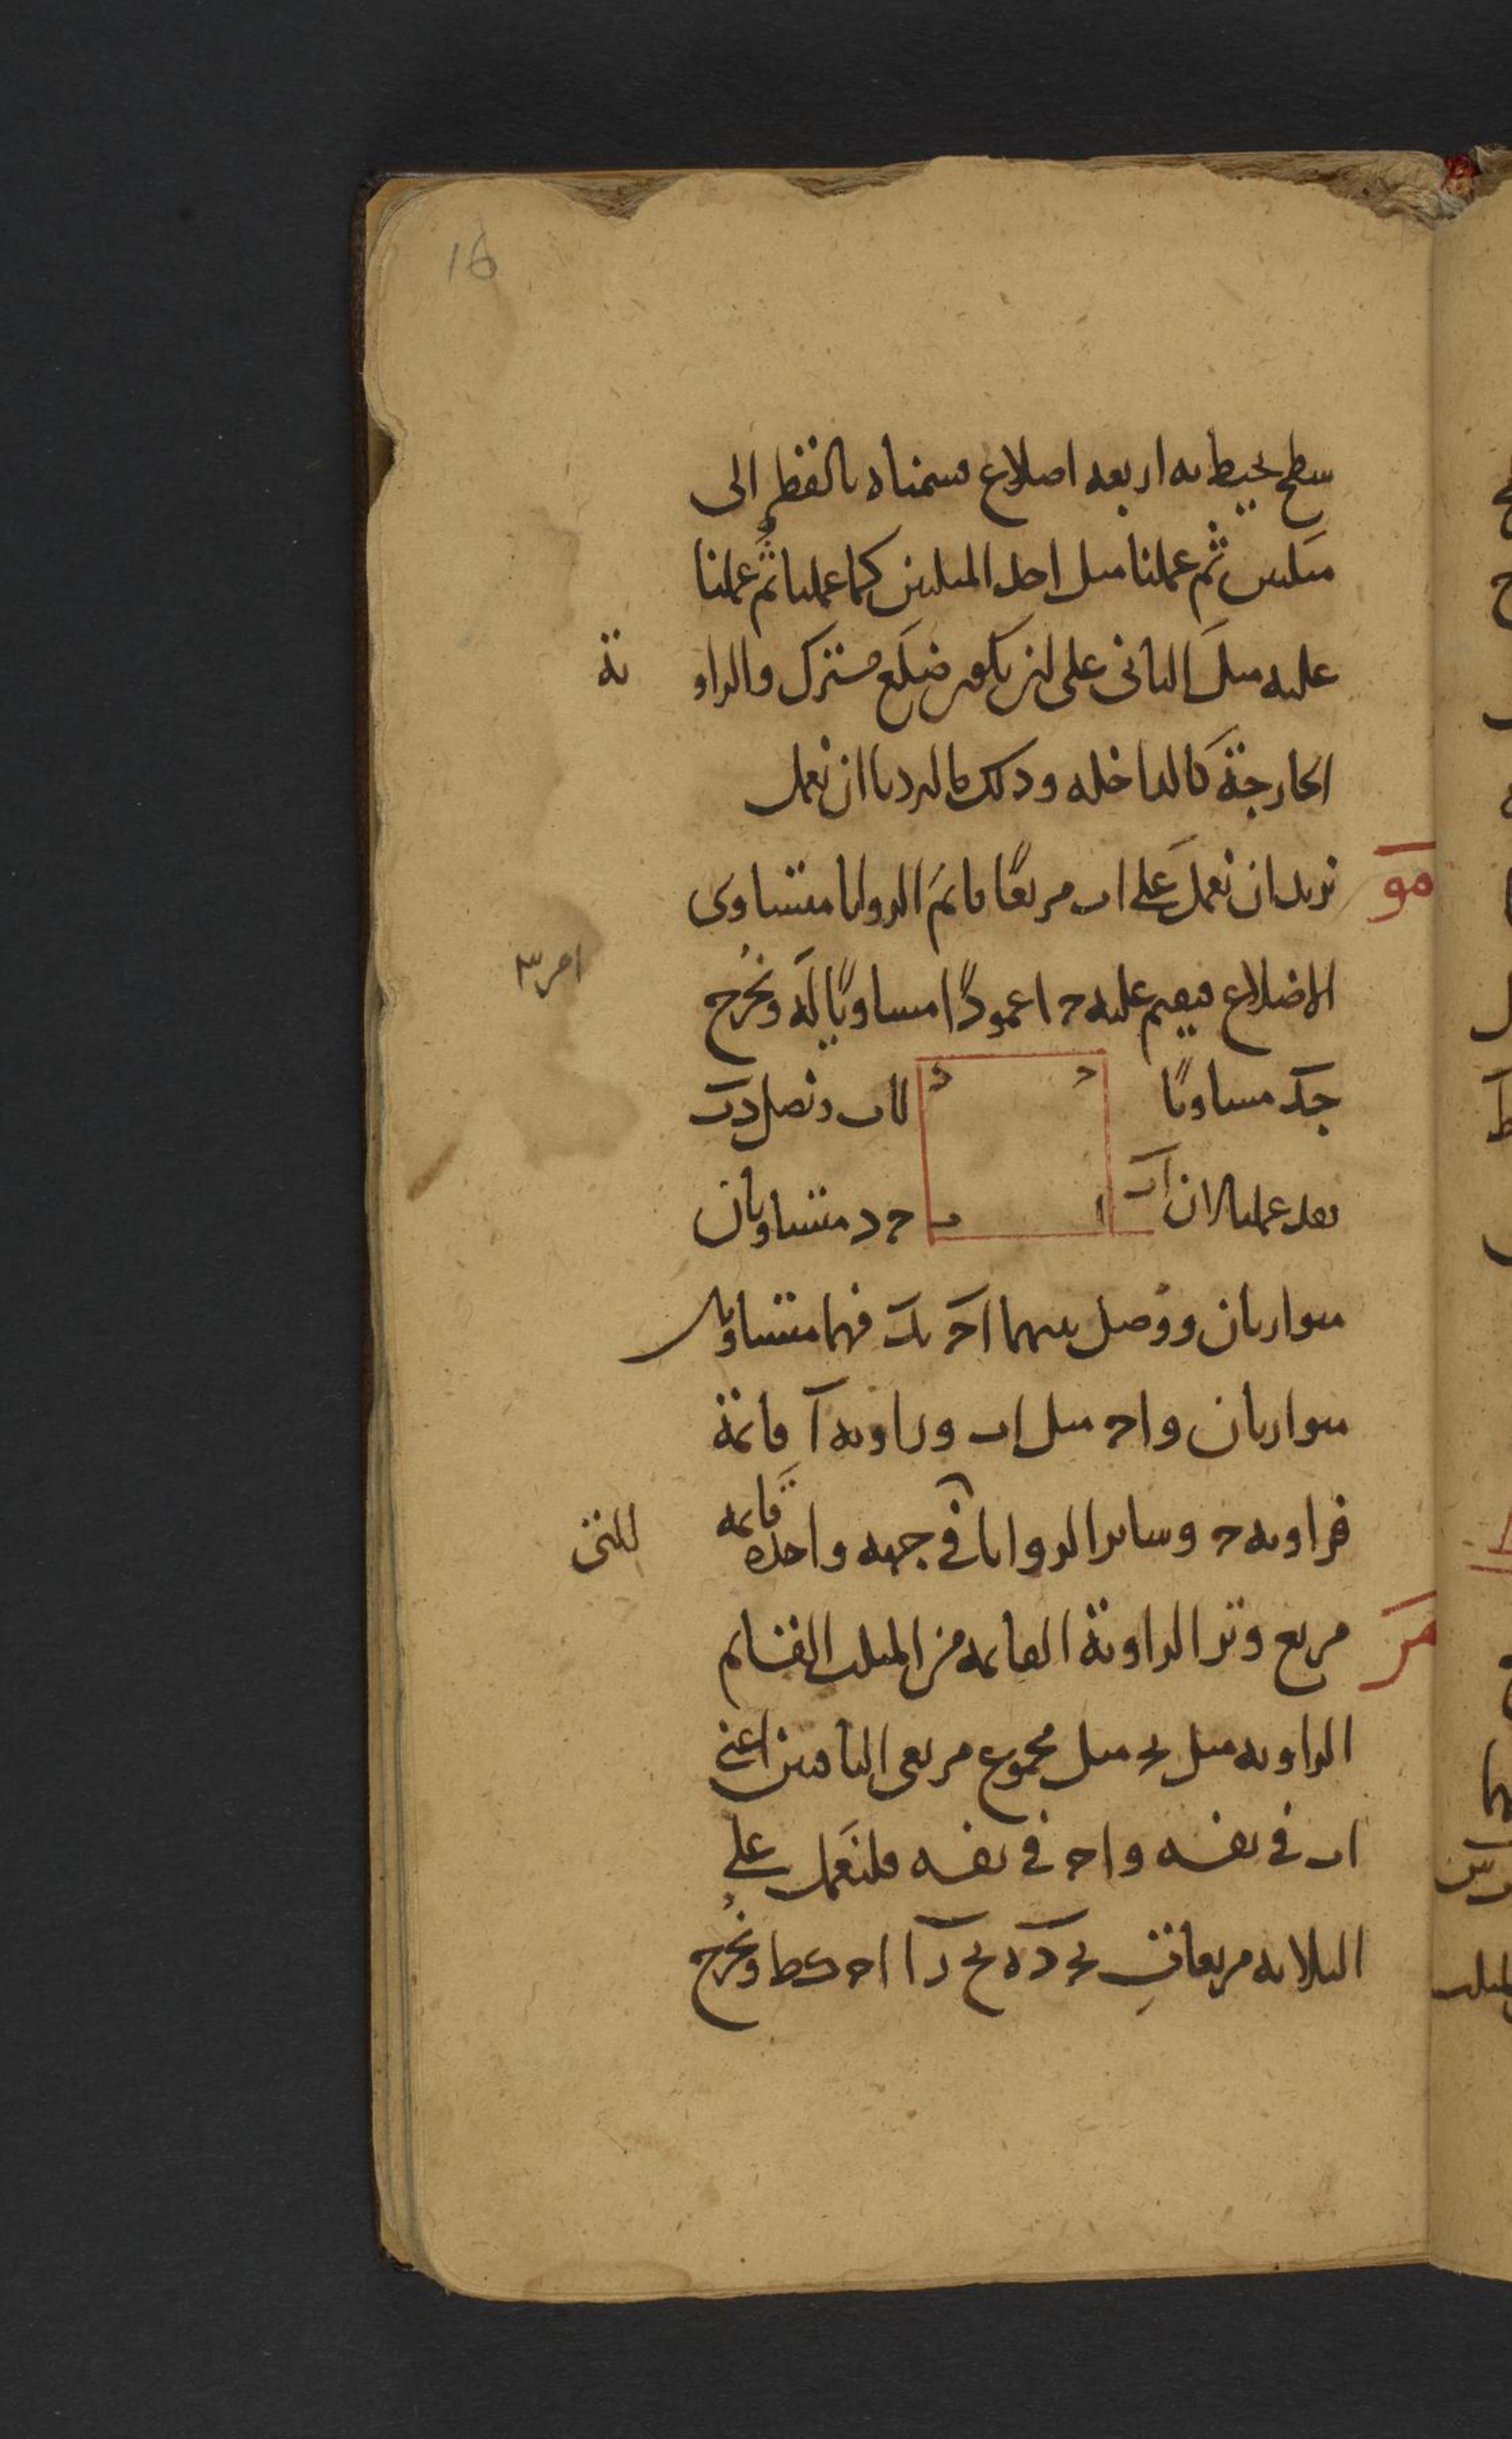 16
سطح يحيط به اربعة اضلاع قسمناه بالقطر الى
مثلثين ثم عملنا مثل احد المثلثين كما عملنا ثم عملنا
عليه مثل الثانى على ان يكون ضلع مشترك والزاو ية
الخارجة كالداخلة وذلك ما اردنا ان نعمل
مو نريد ان نعمل على اب مربعًا قائم الزوايا متساوى
الاضلاع فيقيم عليه ج ا عمودًا مساويًا له ونُخرج
جد مساويًا لاب ونصل دب
بعد عملنا لان اب ج د متساويان
متوازيان ووُصل بينهما اج بد فهما متساويان
متوازيان واج مثل اب وزاوية آ قائمة
فزاوية ج وسائر الزوايا فى جهة واحدة قائمة
مز مربع وتر الزاوية القائمة من المثلث القائم
الزاوية مثل بج مثل مجموع مربعى الباقيين اعنى
اب فى نفسه واج فى نفسه فلنعمل على
الثلاثة مربعات
ونُخرج
د
ح
ا
ب